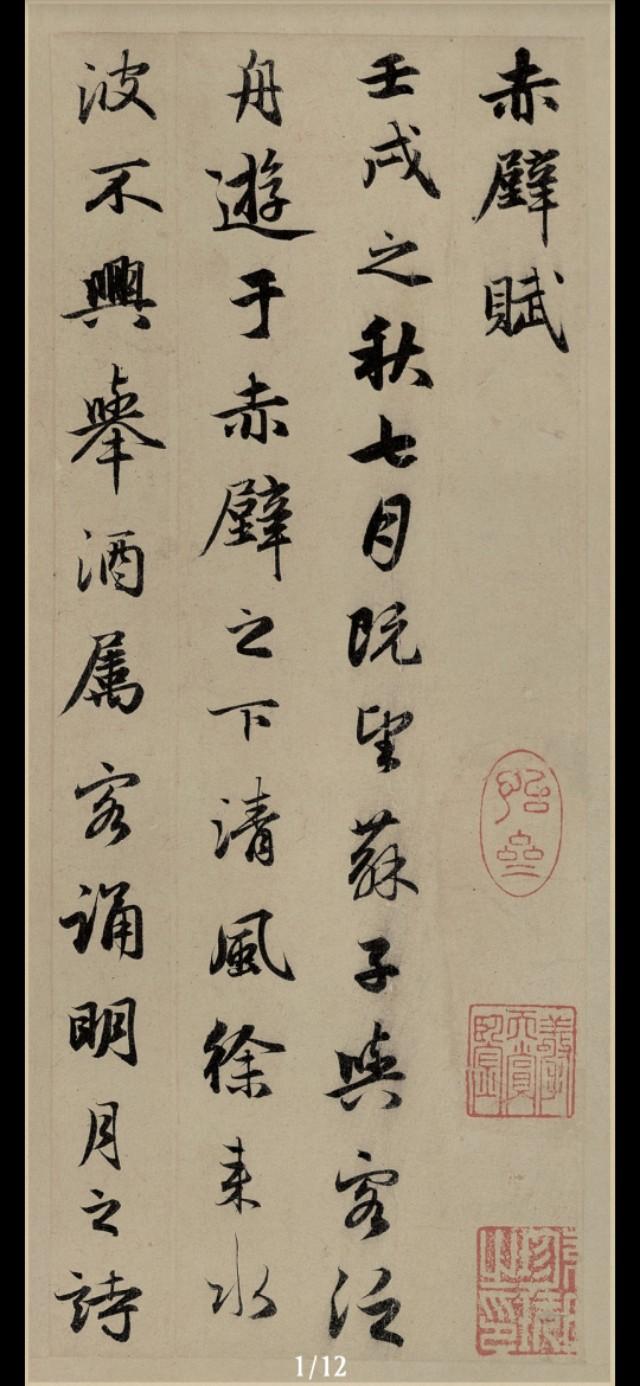 赤壁賦
壬戌之秋七月既望蘇子與客泛
舟遊于赤壁之下清風徐来水
波不興舉酒属客誦明月之詩
1/12